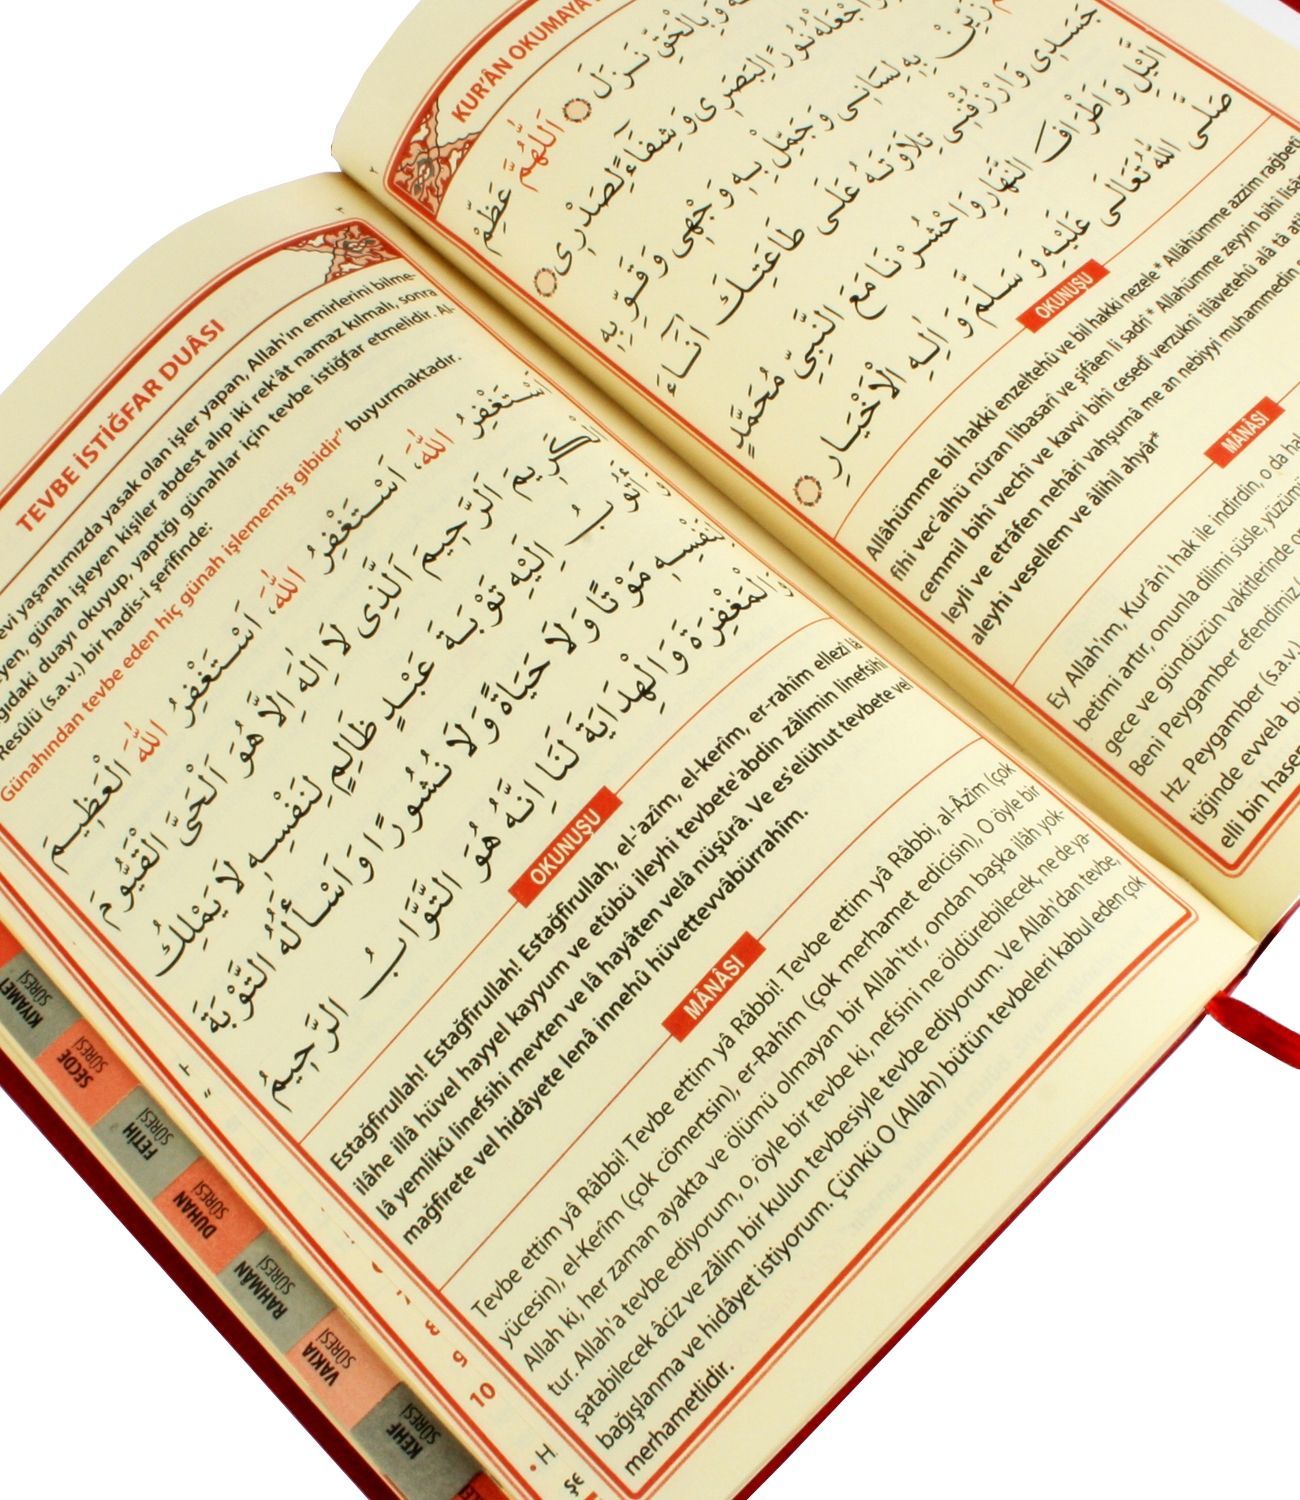 TEVBE İSTİĞFAR DUÂSI
evi yaşantımızda yasak olan işler yapan, Allah'ın emirlerini bilme-
yen, günah işleyen kişiler abdest alıp iki rek'ât namaz kılmalı, sonra
duayı okuyup, yaptığı günahlar için tevbe istiğfar etmelidir. Al-
Resûlü (s.a.v.) bir hadis-i şerifinde:
Günahından tevbe eden hiç günah işlememiş gibidir" buyurmaktadır.
اَسْتَغْفِرُ اللّٰهَ، اَسْتَغْفِرُ اللّٰهَ، اَسْتَغْفِرُ اللّٰهَ الْعَظِيمَ
الْكَرِيمَ اَلرَّحِيمَ اَلَّذِى لَا اِلٰهَ اِلَّا هُوَ اَلْحَىَّ الْقَيُّومَ
وَاَتُوبُ اِلَيْهِ تَوْبَةَ عَبْدٍ ظَالِمٍ لِنَفْسِهِ لَا يَمْلِكُ
لِنَفْسِهِ مَوْتًا وَلَا حَيَاةً وَلَا نُشُورًا وَاَسْأَلُهُ التَّوْبَةَ
وَالْمَغْفِرَةَ وَالْهِدَايَةَ لَنَا اِنَّهُ هُوَ التَّوَّابُ الرَّحِيمُ
OKUNUŞU
Estağfirullah! Estağfirullah! Estağfirullah, el-'azîm, el-kerîm, er-rahîm ellezi lâ
ilâhe illâ hüvel hayyel kayyum ve etûbü ileyhi tevbete'abdin zâlimin linefsihî
lâ yemlikû linefsihi mevten ve lâ hayâten velâ nüşûrâ. Ve es'elühut tevbete vel
mağfirete vel hidâyete lenâ innehû hüvettevvâbürrahîm.
MÂNÂSI
Tevbe ettim yâ Râbbi! Tevbe ettim yâ Râbbi! Tevbe ettim yâ Râbbi, al-Âzîm (çok
yücesin), el-Kerîm (çok cömertsin), er-Rahîm (çok merhamet edicisin), O öyle bir
Allah ki, her zaman ayakta ve ölümü olmayan bir Allah'tır, ondan başka ilâh yok-
tur. Allah'a tevbe ediyorum, o, öyle bir tevbe ki, nefsini ne öldürebilecek, ne de ya-
şatabilecek âciz ve zâlim bir kulun tevbesiyle tevbe ediyorum. Ve Allah'dan tevbe,
bağışlanma ve hidâyet istiyorum. Çünkü O (Allah) bütün tevbeleri kabul eden çok
merhametlidir.
KUR'ÂN OKUMAYA
وَبِالْحَقِّ نَزَلَ اَللّٰهُمَّ عَظِّمْ
وَاجْعَلْهُ نُورًا لِبَصَرِى وَشِفَاءً لِصَدْرِى
زَيِّنْ بِهِ لِسَانِى وَجَمِّلْ بِهِ وَجْهِى وَقَوِّ بِهِ
جَسَدِى وَارْزُقْنِى تِلَاوَتَهُ عَلَى طَاعَتِكَ آنَاءَ
الَّيْلِ وَاَطْرَافَ النَّهَارِ وَاحْشُرْنَا مَعَ النَّبِىِّ مُحَمَّدٍ
صَلَّى اللّٰهُ تَعَالَى عَلَيْهِ وَسَلَّمَ وَاٰلِهِ الْاَخْيَارِ
OKUNUŞU
Allâhümme bil hakki enzeltehû ve bil hakki nezele * Allâhümme azzim rağbetî
fîhi vec'alhü nûran libasarî ve şifâen li sadrî * Allahümme zeyyin bihî lisânî
cemmil bihî vechî ve kavvi bihî cesedî verzuknî tilâvetehû alâ tâ
leyli ve etrâfen nehâri vahşurnâ me an nebiyyi muhammedin
aleyhi vesellem ve âlihil ahyâr*
MÂNÂSI
Ey Allah'ım, Kur'ân'ı hak ile indirdin, o da
betimi artır, onunla dilimi süsle, yüzümü
gece ve gündüzün vakitlerinde
Beni Peygamber efendimiz
Hz. Peygamber (s.a.v.)
tiğinde evvela
elli bin
KIYAMET SÛRESİ
SECDE SÛRESİ
FETİH SÛRESİ
DUHAN SÛRESİ
RAHMÂN SÛRESİ
VAKIA SÛRESİ
KEHF SÛRESİ
10